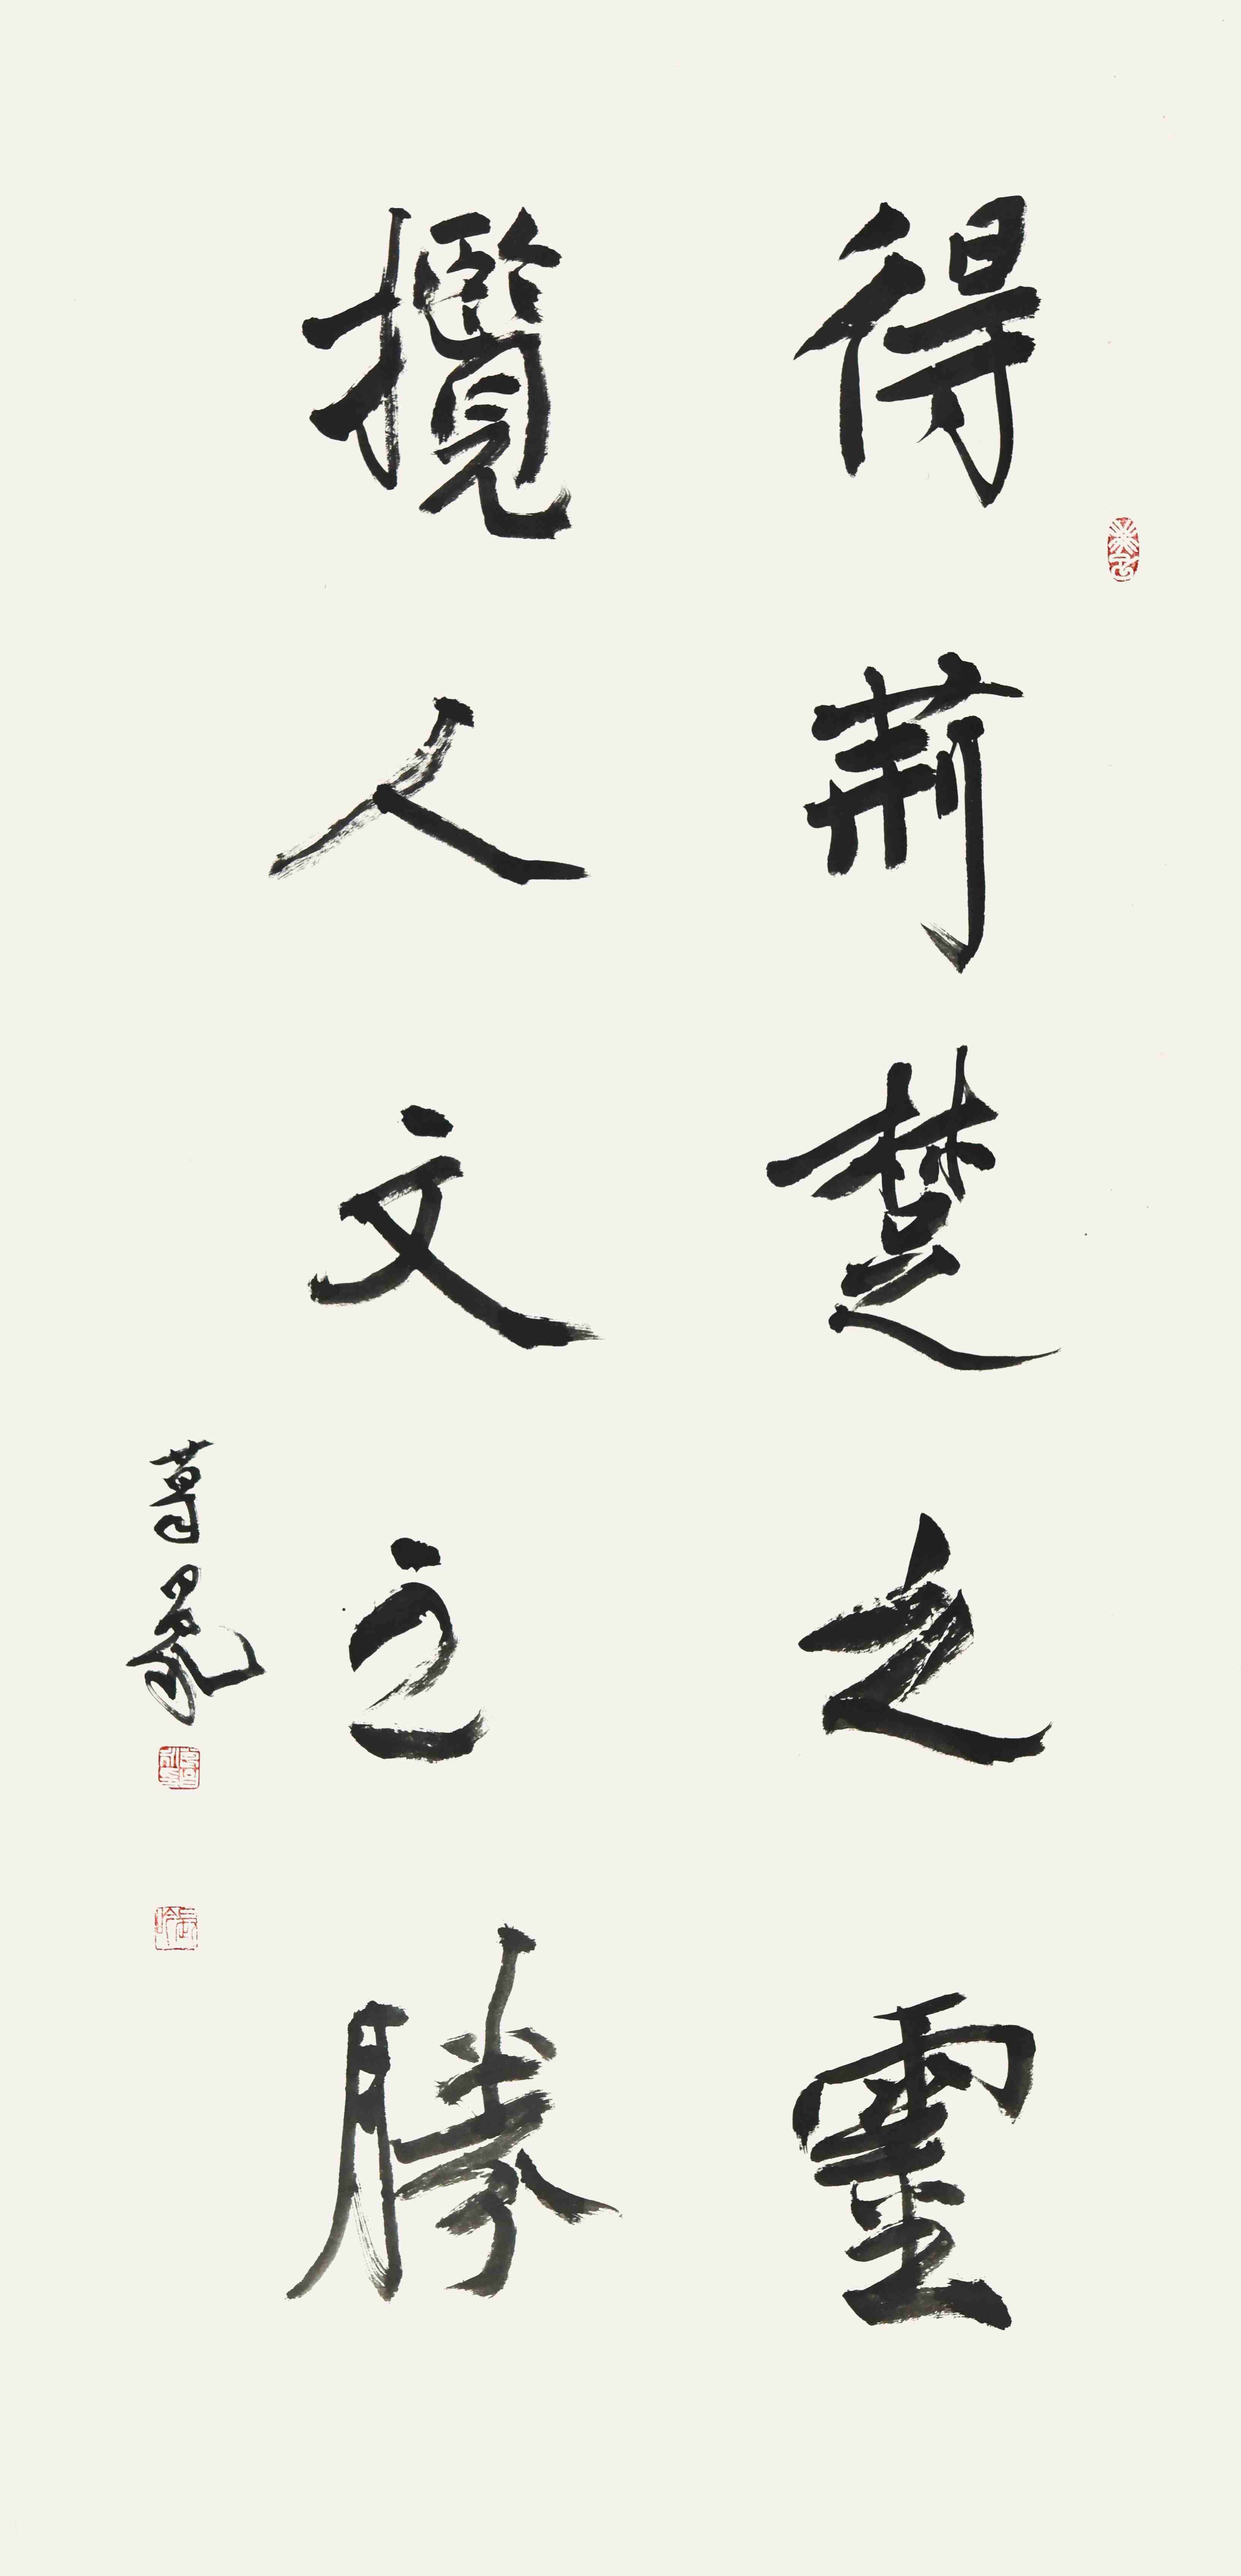 得荊楚之靈
攬人文之勝